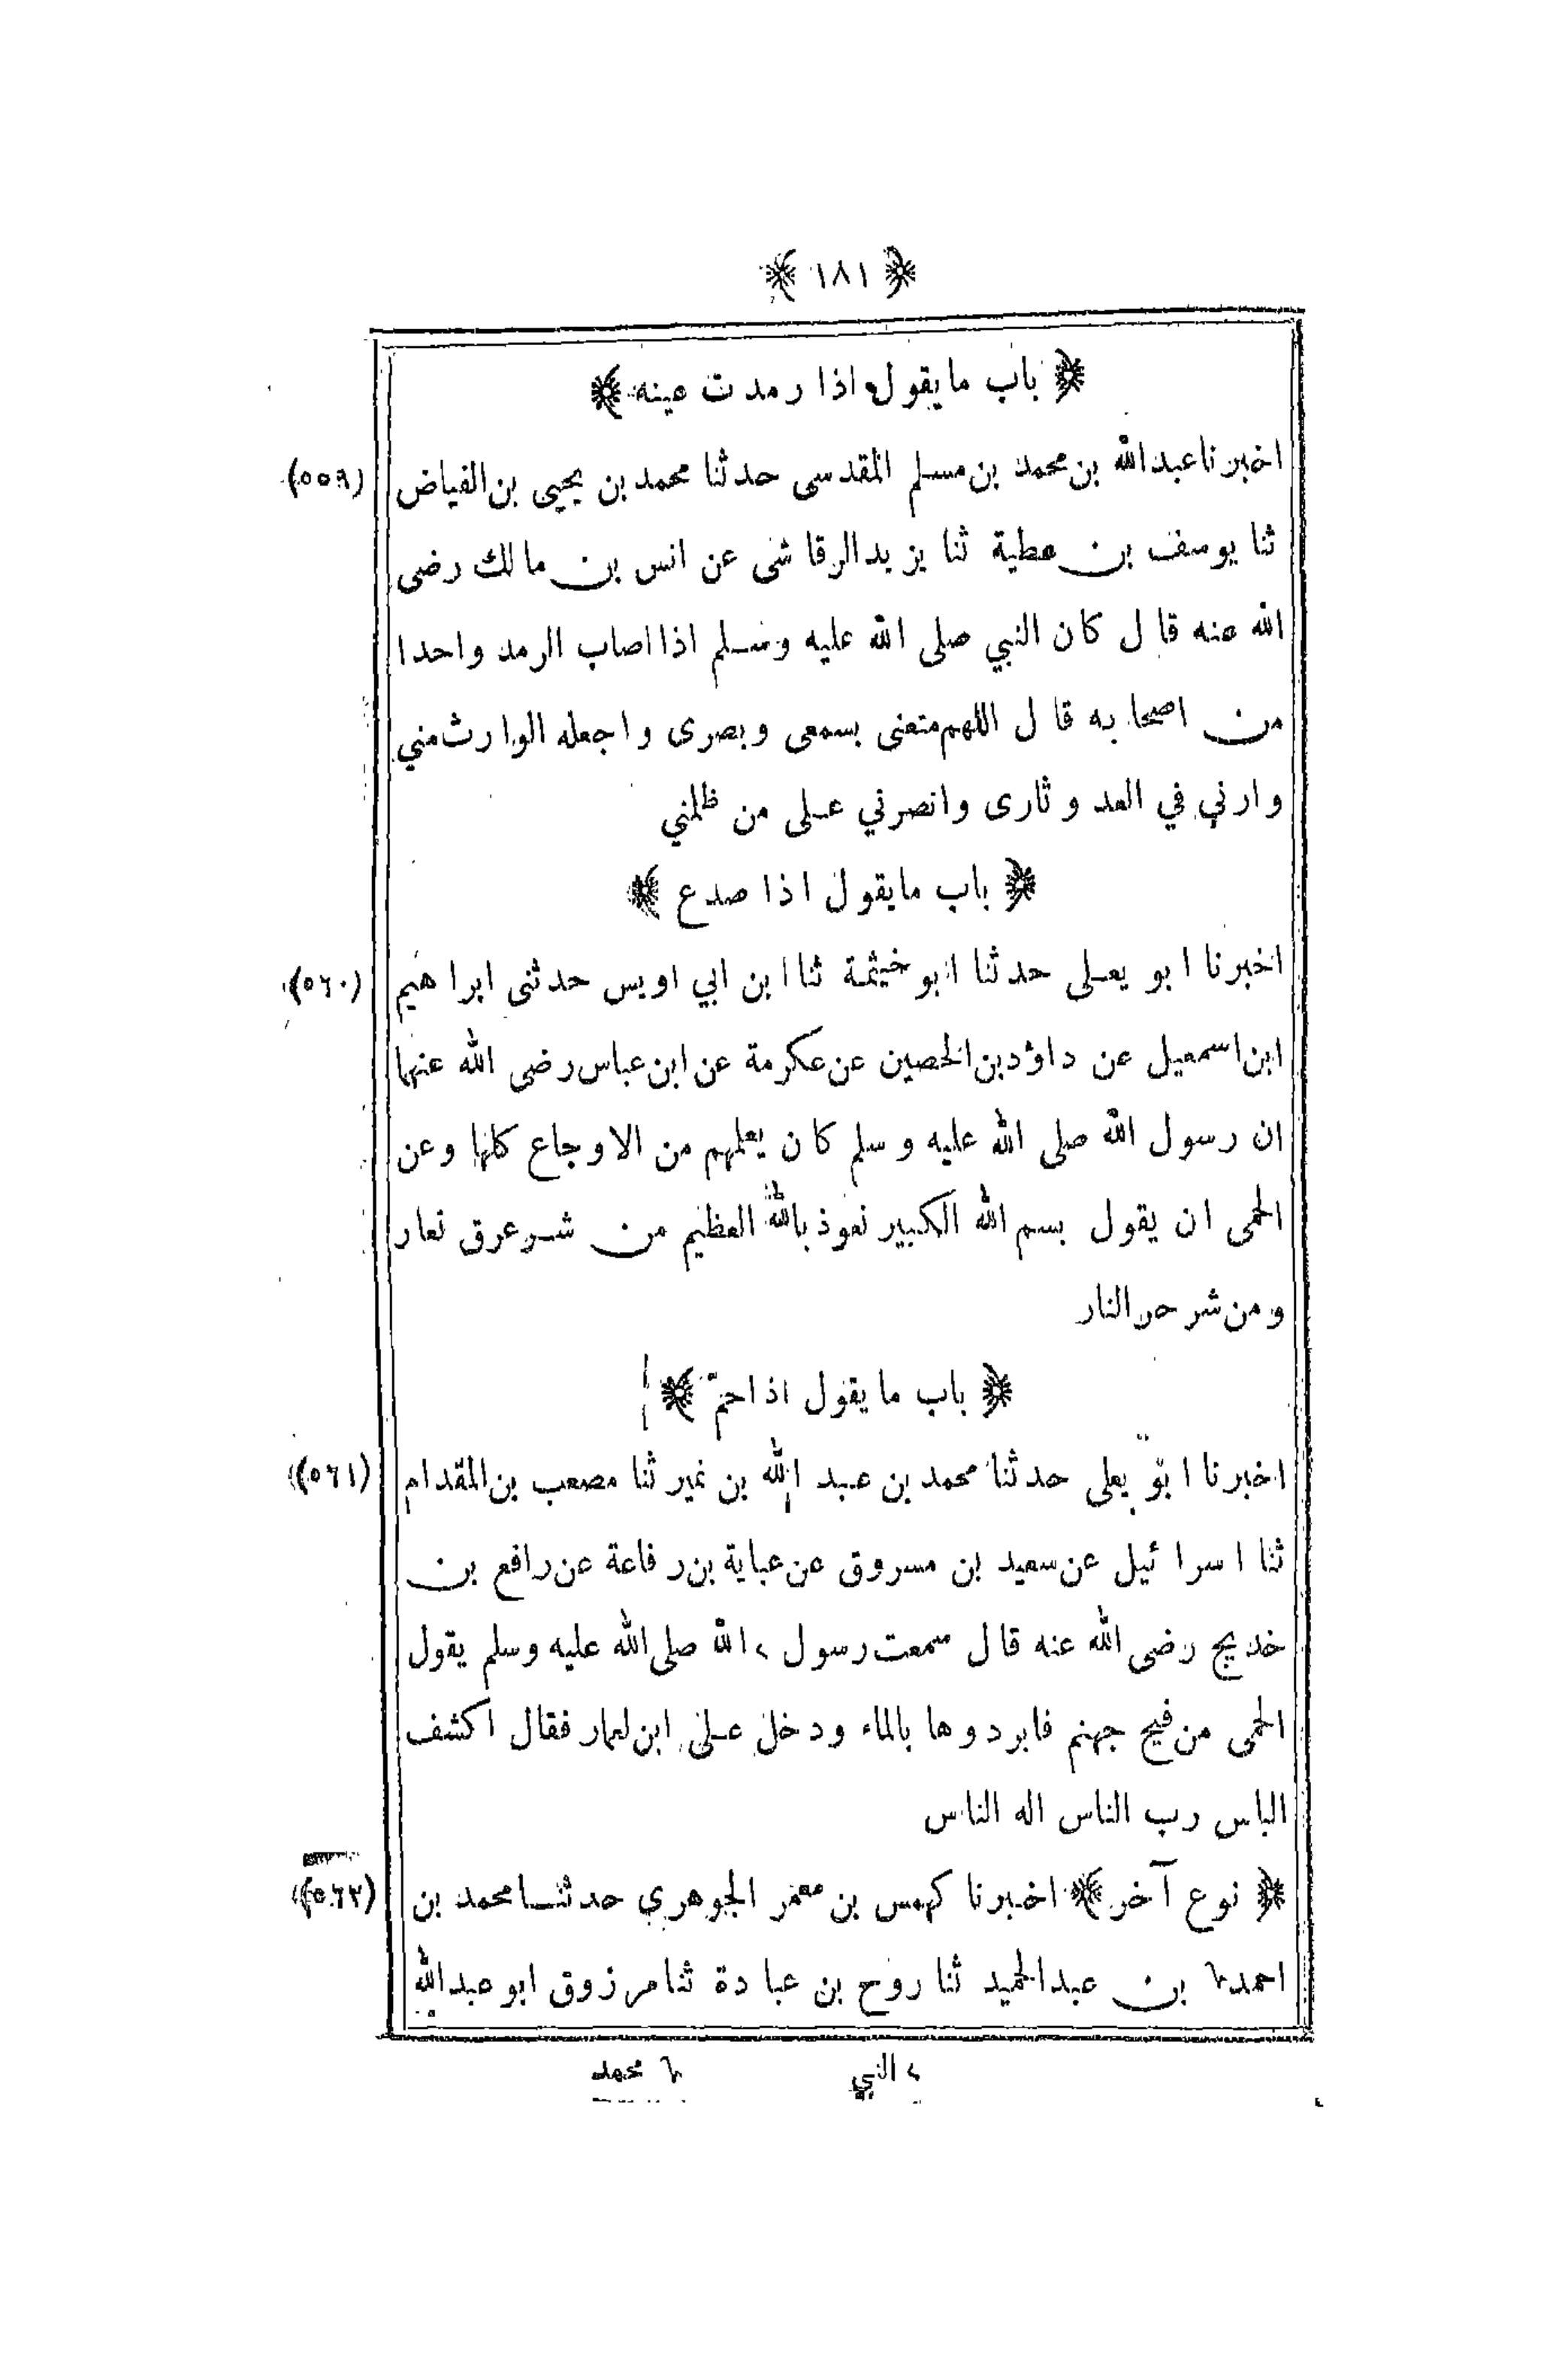 ﴿ ١٨١ ﴾
﴿ باب ما يقول اذا رمدت عينه ﴾
اخبرنا عبد الله بن محمد بن مسلم المقدسى حدثنا محمد بن يحيى بن الفياض (٥٥٩)
ثنا يوسف بن عطية ثنا يزيد الرقاشى عن انس بن مالك رضى
الله عنه قال كان النبي صلى الله عليه وسلم اذا اصاب الرمد واحدا
من اصحابه قال اللهم متعنى بسمعى وبصرى واجعله الوارث مني
وارني في العدو ثارى وانصرني على من ظلمني
﴿ باب ما يقول اذا صدع ﴾
اخبرنا ابو يعلى حدثنا ابو خيثمة ثنا ابن ابي اويس حدثنى ابراهيم (٥٦٠)
ابن اسمعيل عن داؤد بن الحصين عن عكرمة عن ابن عباس رضى الله عنهما
ان رسول الله صلى الله عليه وسلم كان يعلمهم من الاوجاع كلها وعن
الحمى ان يقول بسم الله الكبير نعوذ بالله العظيم من شر عرق نعار
ومن شر حر النار
﴿ باب ما يقول اذا حمّ ﴾
اخبرنا ابو يعلى حدثنا محمد بن عبد الله بن نمير ثنا مصعب بن المقدام (٥٦١)
ثنا اسرائيل عن سعيد بن مسروق عن عباية بن رفاعة عن رافع بن
خديج رضى الله عنه قال سمعت رسول ٢ الله صلى الله عليه وسلم يقول
الحمى من فيح جهنم فابردوها بالماء ودخل على ابن لعمار فقال اكشف
الباس رب الناس اله الناس
﴿ نوع آخر ﴾ اخبرنا كهمس بن معمر الجوهري حدثنا محمد بن (٥٦٢)
احمد ٦ بن عبد الحميد ثنا روح بن عبادة ثنا مرزوق ابو عبد الله
٢ النبي ٦ محمد